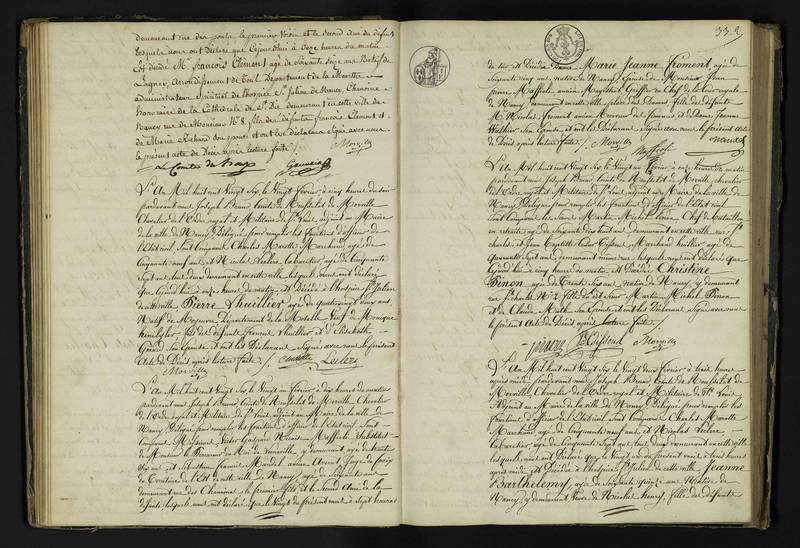 demeurant rue des ponts le premier voisin et le second ami du défunt
lesquels nous ont déclaré que cejourd'hui à onze heures du matin
Est décédé Mr. François Clément agé de Soixante onze ans Natif de
Lagney, arrondissement de Toul Département de la Meurthe
administrateur Spirituel de l'hospice St. Julien de Nancy, Chanoine
honoraire de la Cathédrale de St. Dié demeurant en cette ville de
Nancy rue de N° 8. fils de défunts françois Clément et
de Marie Richard Son épouse et ont les déclarans Signé avec nous
le présent acte de Décès après lecture faite /.
Morville
L'An Mil huit cent Vingt Six, le Vingt février, à cinq heures du soir
pardevant nous Joseph Comte de Morville
Chevalier de l'Ordre royal et Militaire de St. Louis, adjoint au Maire
de la ville de Nancy, Délégué pour remplir les fonctions d'officier de
l'Etat civil, Sont Comparus Charles Marotte Marchand, agé de
Cinquante neuf ans, et Nicolas Leclerc, Cabaretier, agé de Cinquante
Sept ans, tous deux demeurant en cette ville lesquels nous ont déclaré
que Cejourd'hui à onze heures du matin, est Décédé à l'hospice St. Julien
de cette ville Pierre Lhuillier agé de quatrevingt deux ans
Natif de Département de la Moselle Veuf de Monique
fils de défunts françois Lhuillier et d'Elisabeth
Girard Sa femme, et ont les Déclarans Signé avec nous le présent
Acte de Décès après lecture faite /. Marotte Leclerc
Morville
L'An Mil huit cent Vingt Six, le Vingt un février à dix heures du matin
pardevant nous Joseph Comte de Morville, Chevalier
de l'Ordre royal et Militaire de St. Louis, adjoint au Maire de la ville de
Nancy Délégué pour remplir les fonctions d'officier de l'Etat civil, Sont
Comparus Victor Gaspard
de Monsieur le Procureur du Roi de Lunéville y demeurant, agé de trente
ans, et Sébastien françois Mandel
de Contrôle de l'Est de cette ville de Nancy, agé de
demeurant rue des Chanoines le premier fils et le Second Ami de la
défunte, lesquels nous ont déclaré que le Vingt du présent mois à Sept heures
332
du soir, est Décédée Dame Marie Jeanne Froment agée de
Soixante cinq ans native de Nancy, Epouse de Monsieur Jean
ancien Magistrat Greffier en Chef de la Cour royale
de Nancy demeurant en cette ville place des Dames, fille de défunts
Mr. Nicolas froment, ancien et de Dame Jeanne
Sa femme et ont les Déclarans Signé avec nous le présent Acte
de Décès après lecture faite /. Morville
Mandel
L'An Mil huit cent Vingt Six le Vingt un février à onze heures du matin
pardevant nous Joseph Comte de Morville, chevalier
de l'Ordre royal et Militaire de St. Louis, adjoint au Maire de la ville de
Nancy Délégué pour remplir les fonctions d'officier de l'Etat civil
Sont Comparus les Sieurs Martin Michel Pinon, Chef de Bataillon
en retraite, agé de Soixante dix huit ans demeurant en cette ville rue St.
Charles, et Jean Baptiste Marchand huilier, agé de
quarante Sept ans, demeurant même rue, lesquels nous ont déclaré que
Cejourd'hui à cinq heures du matin, est Décédée Christine
Pinon agée de trente Sept ans, native de Nancy, y demeurant
rue St. Charles N° 2, fille dudit Sieur Martin Michel Pinon
et de Claire Son épouse, et ont les Déclarans Signé avec nous
le présent Acte de Décès après lecture faite /.
Pinon Morville
L'An Mil huit cent Vingt Six, le Vingt deux février à trois heures
après midi, pardevant nous Joseph Comte de
Morville, Chevalier de l'Ordre royal et Militaire de St. Louis
Adjoint au Maire de la ville de Nancy, Délégué pour remplir les
fonctions d'officier de l'Etat civil, Sont Comparus, Charles Marotte
Marchand, agé de Cinquante neuf ans, et Nicolas Leclerc
Cabaretier, agé de Cinquante Sept ans, tous deux demeurant en cette ville
lesquels nous ont Déclaré que le Vingt un du présent mois à trois heures
après midi, est Décédée à l'hospice St. Julien de cette ville Jeanne
Barthelemy, agée de Soixante quinze ans Native de
Nancy, y demeurant Veuve de Nicolas Henry, fille de défunts